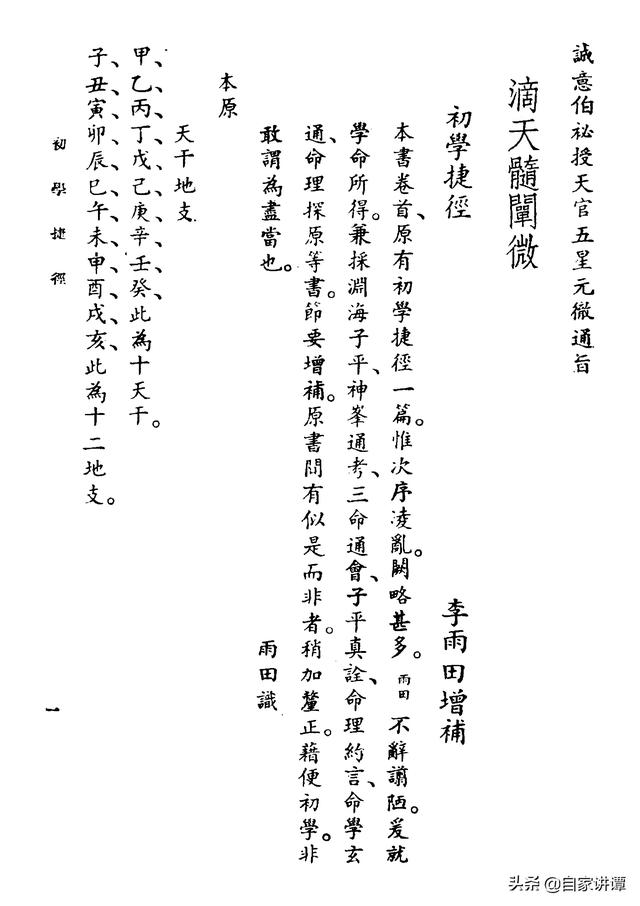 誠意伯祕授天官五星元微通旨
滴天髓闡微
初學捷徑
李雨田增補
本書卷首、原有初學捷徑一篇。惟次序凌亂。闕略甚多。雨田不辭譾陋。爰就
學命所得。兼採淵海子平、神峯通考、三命通會、子平真詮、命理約言、命學玄
通、命理探原等書。節要增補。原書間有似是而非者。稍加釐正。藉便初學。非
敢謂為盡當也。
雨田識
本原
天干地支
甲、乙、丙、丁、戊、己、庚、辛、壬、癸、此為十天干。
子、丑、寅、卯、辰、巳、午、未、申、酉、戌、亥、此為十二地支。
初學捷徑
一
头条 @自家讲谭